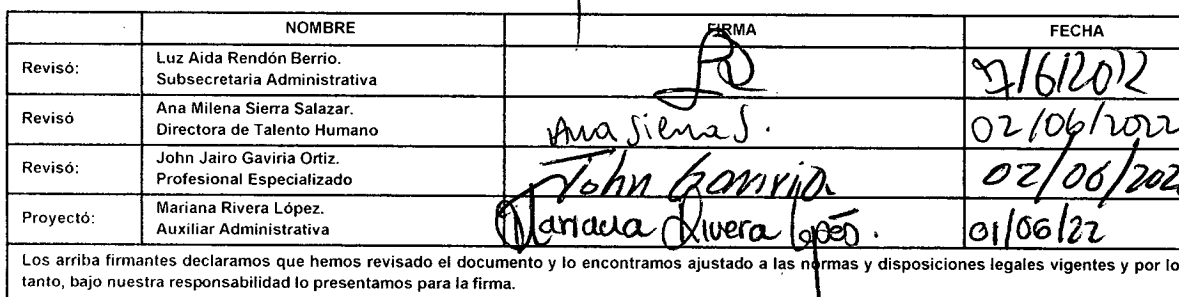 NOMBRE FIRMA FECHA
Revisó: Luz Aida Rendón Berrio.
Subsecretaria Administrativa 7/6/2022
Revisó Ana Milena Sierra Salazar.
Directora de Talento Humano Ana Sierra S. 02/06/2022
Revisó: John Jairo Gaviria Ortiz.
Profesional Especializado John Gaviria 02/06/202
Proyectó: Mariana Rivera López.
Auxiliar Administrativa Mariana Rivera López. 01/06/22
Los arriba firmantes declaramos que hemos revisado el documento y lo encontramos ajustado a las normas y disposiciones legales vigentes y por lo
tanto, bajo nuestra responsabilidad lo presentamos para la firma.